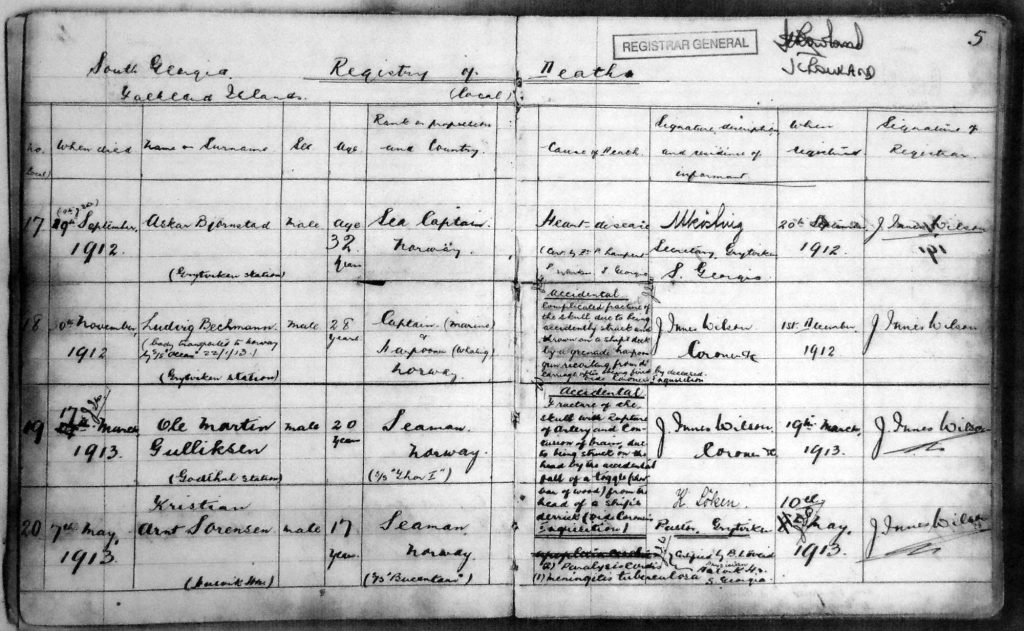 REGISTRAR GENERAL
J Rowland
J C ROWLAND
5
South Georgia. Registry of Deaths
Falkland Islands. (Local)
No. When died Name or Surname Sex Age Rank or profession and Country. Cause of Death Signature, description and residence of informant When registered Signature of Registrar
(Local)
17 19th September, 1912 Askar Bjornstad male age 32 Years Sea Captain. Norway. Heart disease
(Grytviken station)
Secretary, Grytviken
S. Georgia
20th September 1912 J Innes Wilson
18 November, 1912 Ludvig Bechmann. male 28 years Captain (marine) & Harpooner (Whaling) Norway.
(body transported to Norway
by s/s "Ocean" 22/1/13.)
(Grytviken station)
accidental
Complicated fracture of
the skull due to being
accidently struck and
thrown on a ship's deck
by a grenade harpoon
gun recoiling from its
carriage after being fired by deceased.
vide Coroner's Inquisition
J Innes Wilson
Coroner &c
1st December, 1912 J Innes Wilson
19 17 March 1913. Ole Martin Gulliksen male 20 Years Seaman. Norway.
(Godthul Station) (s/s "Thor I")
accidental
Fracture of the
skull with rupture
of Artery and Con-
tusion of brain, due
to being struck on the
head by the accidental
fall of a toggle (short
bar of wood) from the
head of a ship's
derrick (vide Coroner's
Inquisition)
J Innes Wilson.
Coroner &c
19th March, 1913. J Innes Wilson
20 7th May, 1913. Kristian
Arnt Sorensen male 17 years Seaman Norway
(s/s "Bucentaur")
(2) Paralysis Cordis
(1) Meningitis tuberculosa
K Löken
Pastor, Grytviken
S Georgia.
10th May, 1913. J Innes Wilson